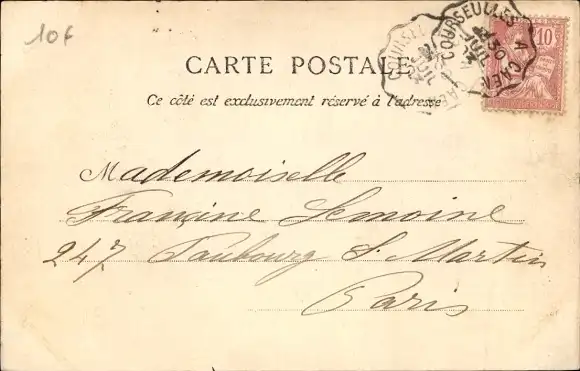 10f
COURSEULLES A CAEN
30
JUIL
10
CARTE POSTALE
Ce côté est exclusivement réservé à l'adresse
Mademoiselle
Françine Lemoine
247 Faubourg St Martin
Paris